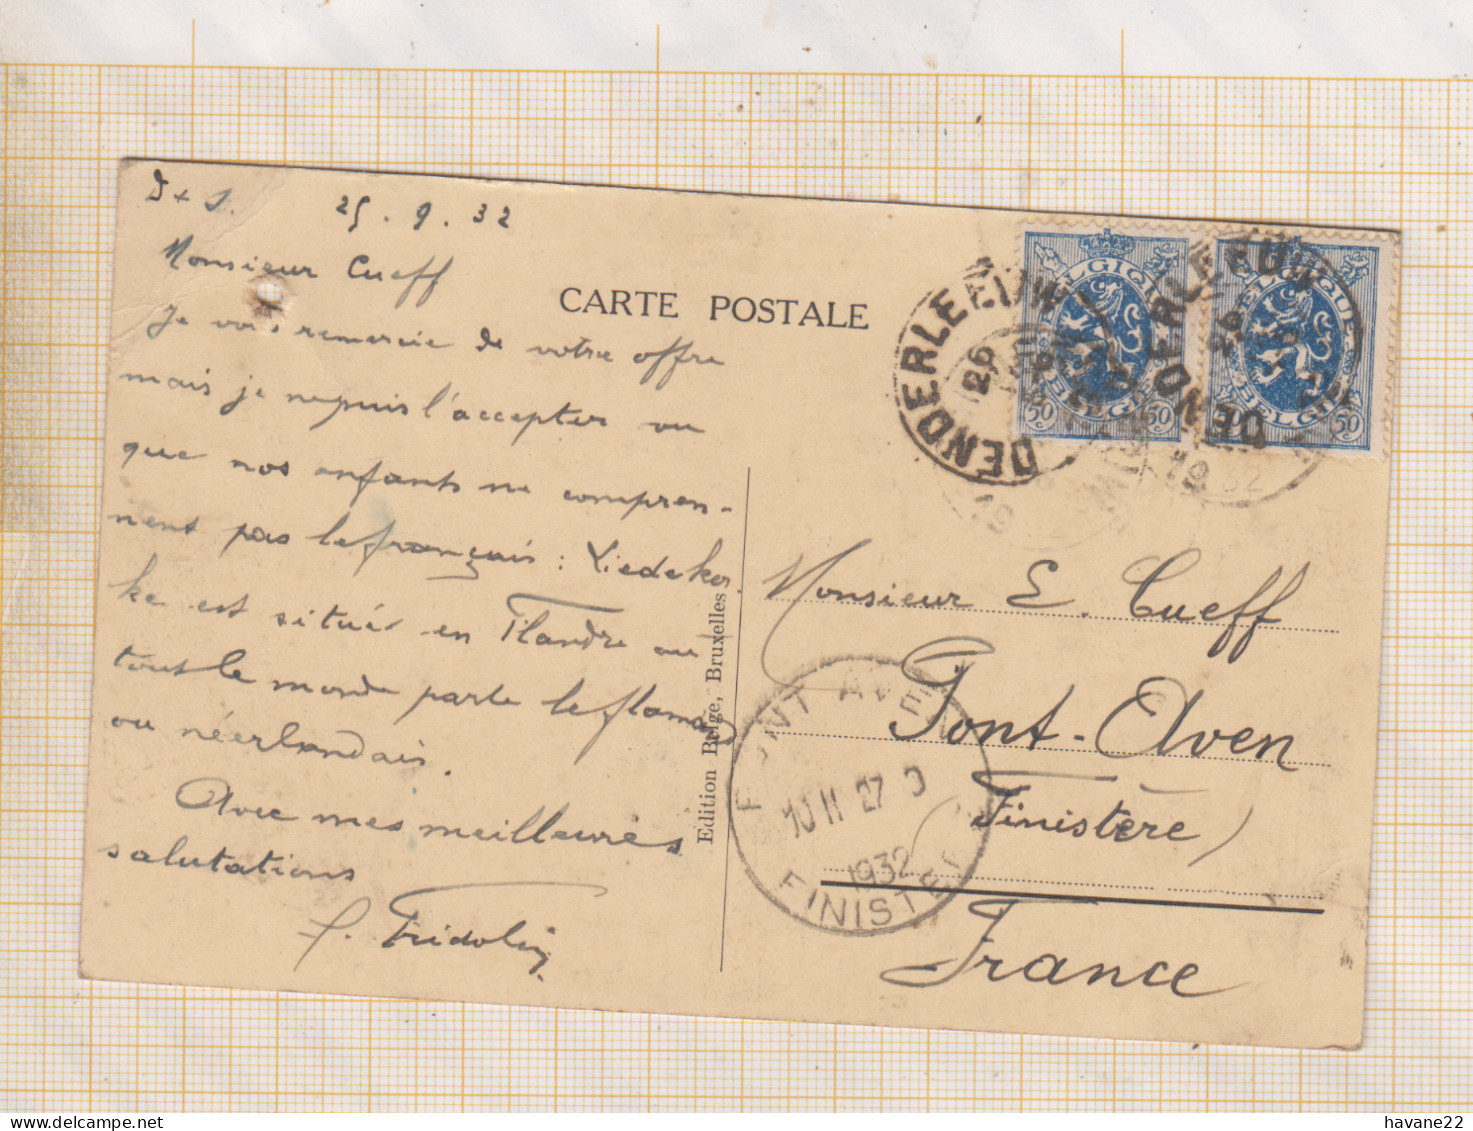 D + S. 25 . 9 . 32
Monsieur Cueff
Je vous remercie de votre offre
mais je ne puis l'accepter vu
que nos enfants ne compren-
nent pas le français : Liedeker
ke est situé en Flandre où
tout le monde parle le flamand
ou néerlandais.
Avec mes meilleures
salutations
f. Fridolin
CARTE POSTALE
Edition Belge, Bruxelles
BELGIQUE
BELGIE
50 50
BELGIQUE
BELGIE
50
DENDERLEEUW
26
DENDERLEEUW
26
1932
Monsieur E. Cueff
Pont-Aven
(Finistère)
France
PONT AVEN
10 11 27 9
1932
FINISTE
havane22